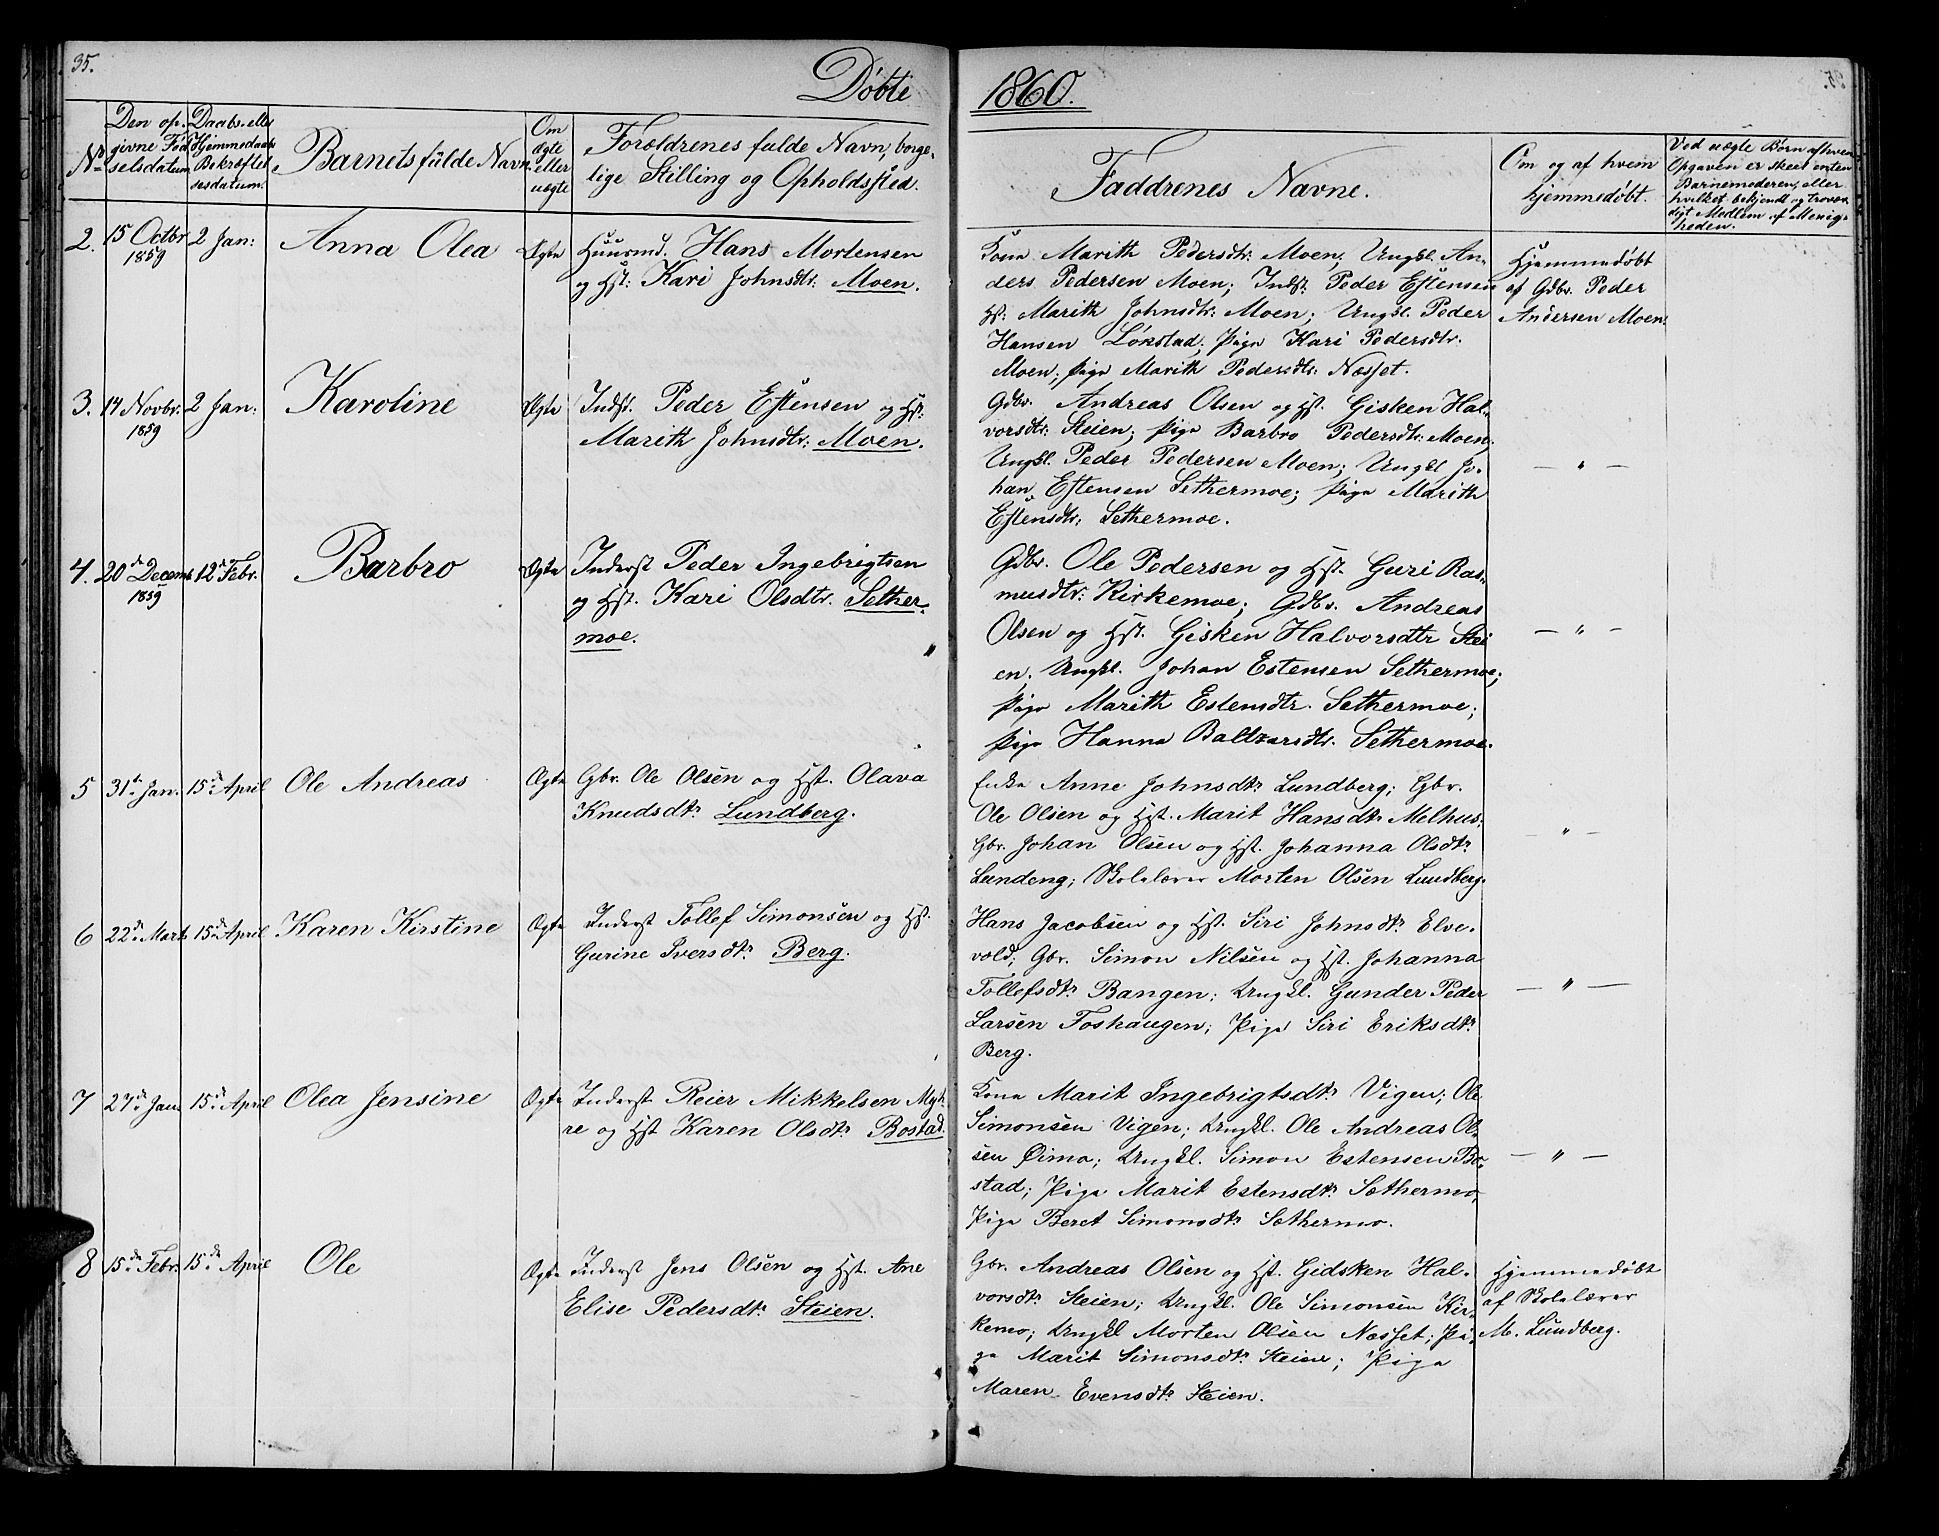 35.
Døbte 1860.
No
Den op-
givne Fød-
selsdatum
Daabs- eller
Hjemmedaabs
Bekræftel-
sesdatum.
Barnets fulde Navn
Om
Ægte
eller
uægte
Forældrenes fulde Navn, borge-
lige Stilling og Opholdssted.
Faddrenes Navne.
Om og af hvem
hjemmedøbt.
Ved uægte Børn af hvem
Opgaven er skeet enten
Barnemoderen, eller
hvilket bekjendt og trovær-
digt Medlem af Menig-
heden.
2. 15 Octbr 1859
2 Jan:
Anna Olea
Ægte
Huusmd. Hans Mortensen
og Hst: Kari Johnsdtr: Moen.
Kone Marith Pedersdtr: Moen; Ungkl. An-
ders Pedersen Moen; Indst. Peder Estensen
Hst: Marith Johnsdtr: Moen; Ungkl. Peder
Hansen Løkstad; Pige Kari Pedersdtr.
Moen; pige Marith Pedersdtr: Næsset.
Hjemmedøbt
af Gdbr. Peder
Andersen Moen:
3. 14 Novbr. 1859
2 Jan:
Karoline
Ægte
Indst. Peder Estensen og Hst:
Marith Johnsdtr: Moen.
Gdbr. Andreas Olsen og Hst. Gisken Hal-
vorsdtr: Steien; pige Barbro Pedersdtr: Moen;
Ungkl. Peder Pedersen Moen; Ungkl Jo-
han Estensen Sethermoe; pige Marith
Estensdtr: Sethermoe.
— " —
4. 20de Decemb 1859
12te Febr.
Barbro
Ægte
Inderst Peder Ingebrigtsen
og Hst. Kari Olsdtr. Sether-
moe.
Gdbr. Ole Pedersen og Hst. Guri Ras-
musdtr: Kirkemoe; Gdbr. Andreas
Olsen og Hst. Gisken Halvorsdtr Stei
en; Ungkl. Johan Estensen Sethermoe;
pige Marith Estensdtr. Sethermoe;
pige Hanna Baltzarsdtr. Sethermoe.
— " —
5 31te Jan.
15de April
Ole Andreas
Ægte
Gbr. Ole Olsen og Hst. Olava
Knudsdtr Lundberg.
Enke Anne Johnsdtr Lundberg; Gbr.
Ole Olsen og Hst. Marit Hansdtr Melhus;
Gbr. Johan Olsen og Hst. Johanna Olsdtr
Lundeng; Skolelærer Morten Olsen Lundberg.
— " —
6 22de Marts
15de April
Karen Kirstine
Ægte
Inderst Tollef Simonsen og Hst.
Gurine Iversdtr Berg.
Hans Jacobsen og Hst. Siri Johnsdtr Elve-
vold; Gbr. Simon Nilsen og Hst. Johanna
Tollefsdtr Bangen; Ungkl. Gunder Peder
Larsen Foshaugen; Pige Siri Eriksdtr
Berg.
— " —
7 27de Jan.
15de April
Olea Jensine
Ægte
Inderst Reier Mikkelsen Myh-
re og Hst Karen Olsdtr Bostad.
Kone Marit Ingebrigtsdtr Vigen; Ole
Simonsen Vigen; Ungkl. Ole Andreas Ol-
sen Øimo; Ungkl. Simon Estensen Bo-
stad; Pige Marit Estensdtr Sæthermo,
Pige Beret Simonsdtr Sæthermo.
— " —
8 15de Febr.
15de April
Ole
Ægte
Inderst Jens Olsen og Hst. Ane
Elise Pedersdtr Steien.
Gbr. Andreas Olsen og Hst. Gidsken Hal-
vorsdtr Steien; Ungkl. Ole Simonsen Kir-
kemo; Ungkl Morten Olsen Næsset; Pi-
ge Marit Simonsdtr Steien; Pige
Maren Evensdtr Steien.
Hjemmedøbt
af Skolelærer
M. Lundberg.